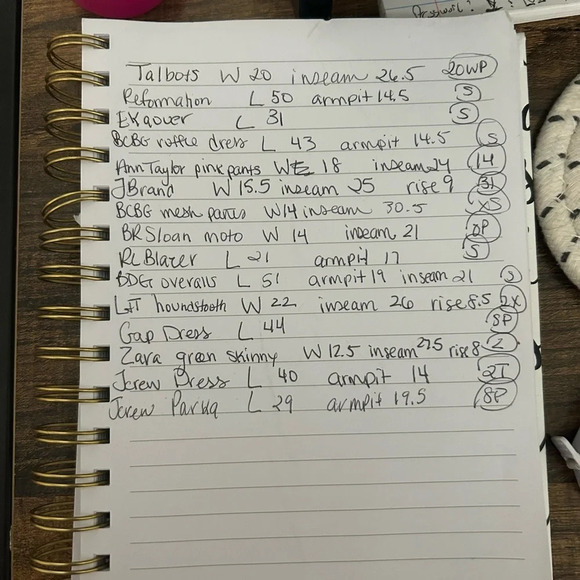 Talbots W 20 inseam 26.5 20WP
Reformation L 50 armpit 14.5 S
L 31 S
BCBG ruffle dress L 43 armpit 14.5 S
Ann Taylor pink pants W 18 inseam 24 14
JBrand W 15.5 inseam 25 rise 9 31
BCBG mesh pants W 14 inseam 30.5 XS
BR Sloan moto W 14 inseam 21 0P
RL Blazer L 21 armpit 17 S
BDG overalls L 51 armpit 19 inseam 21 S
houndstooth W 22 inseam 26 rise 8.5 2X
Gap Dress L 44 8P
Zara green skinny W 12.5 inseam 27.5 rise 8 2
Jcrew Dress L 40 armpit 14 2T
Jcrew Parka L 29 armpit 19.5 8P